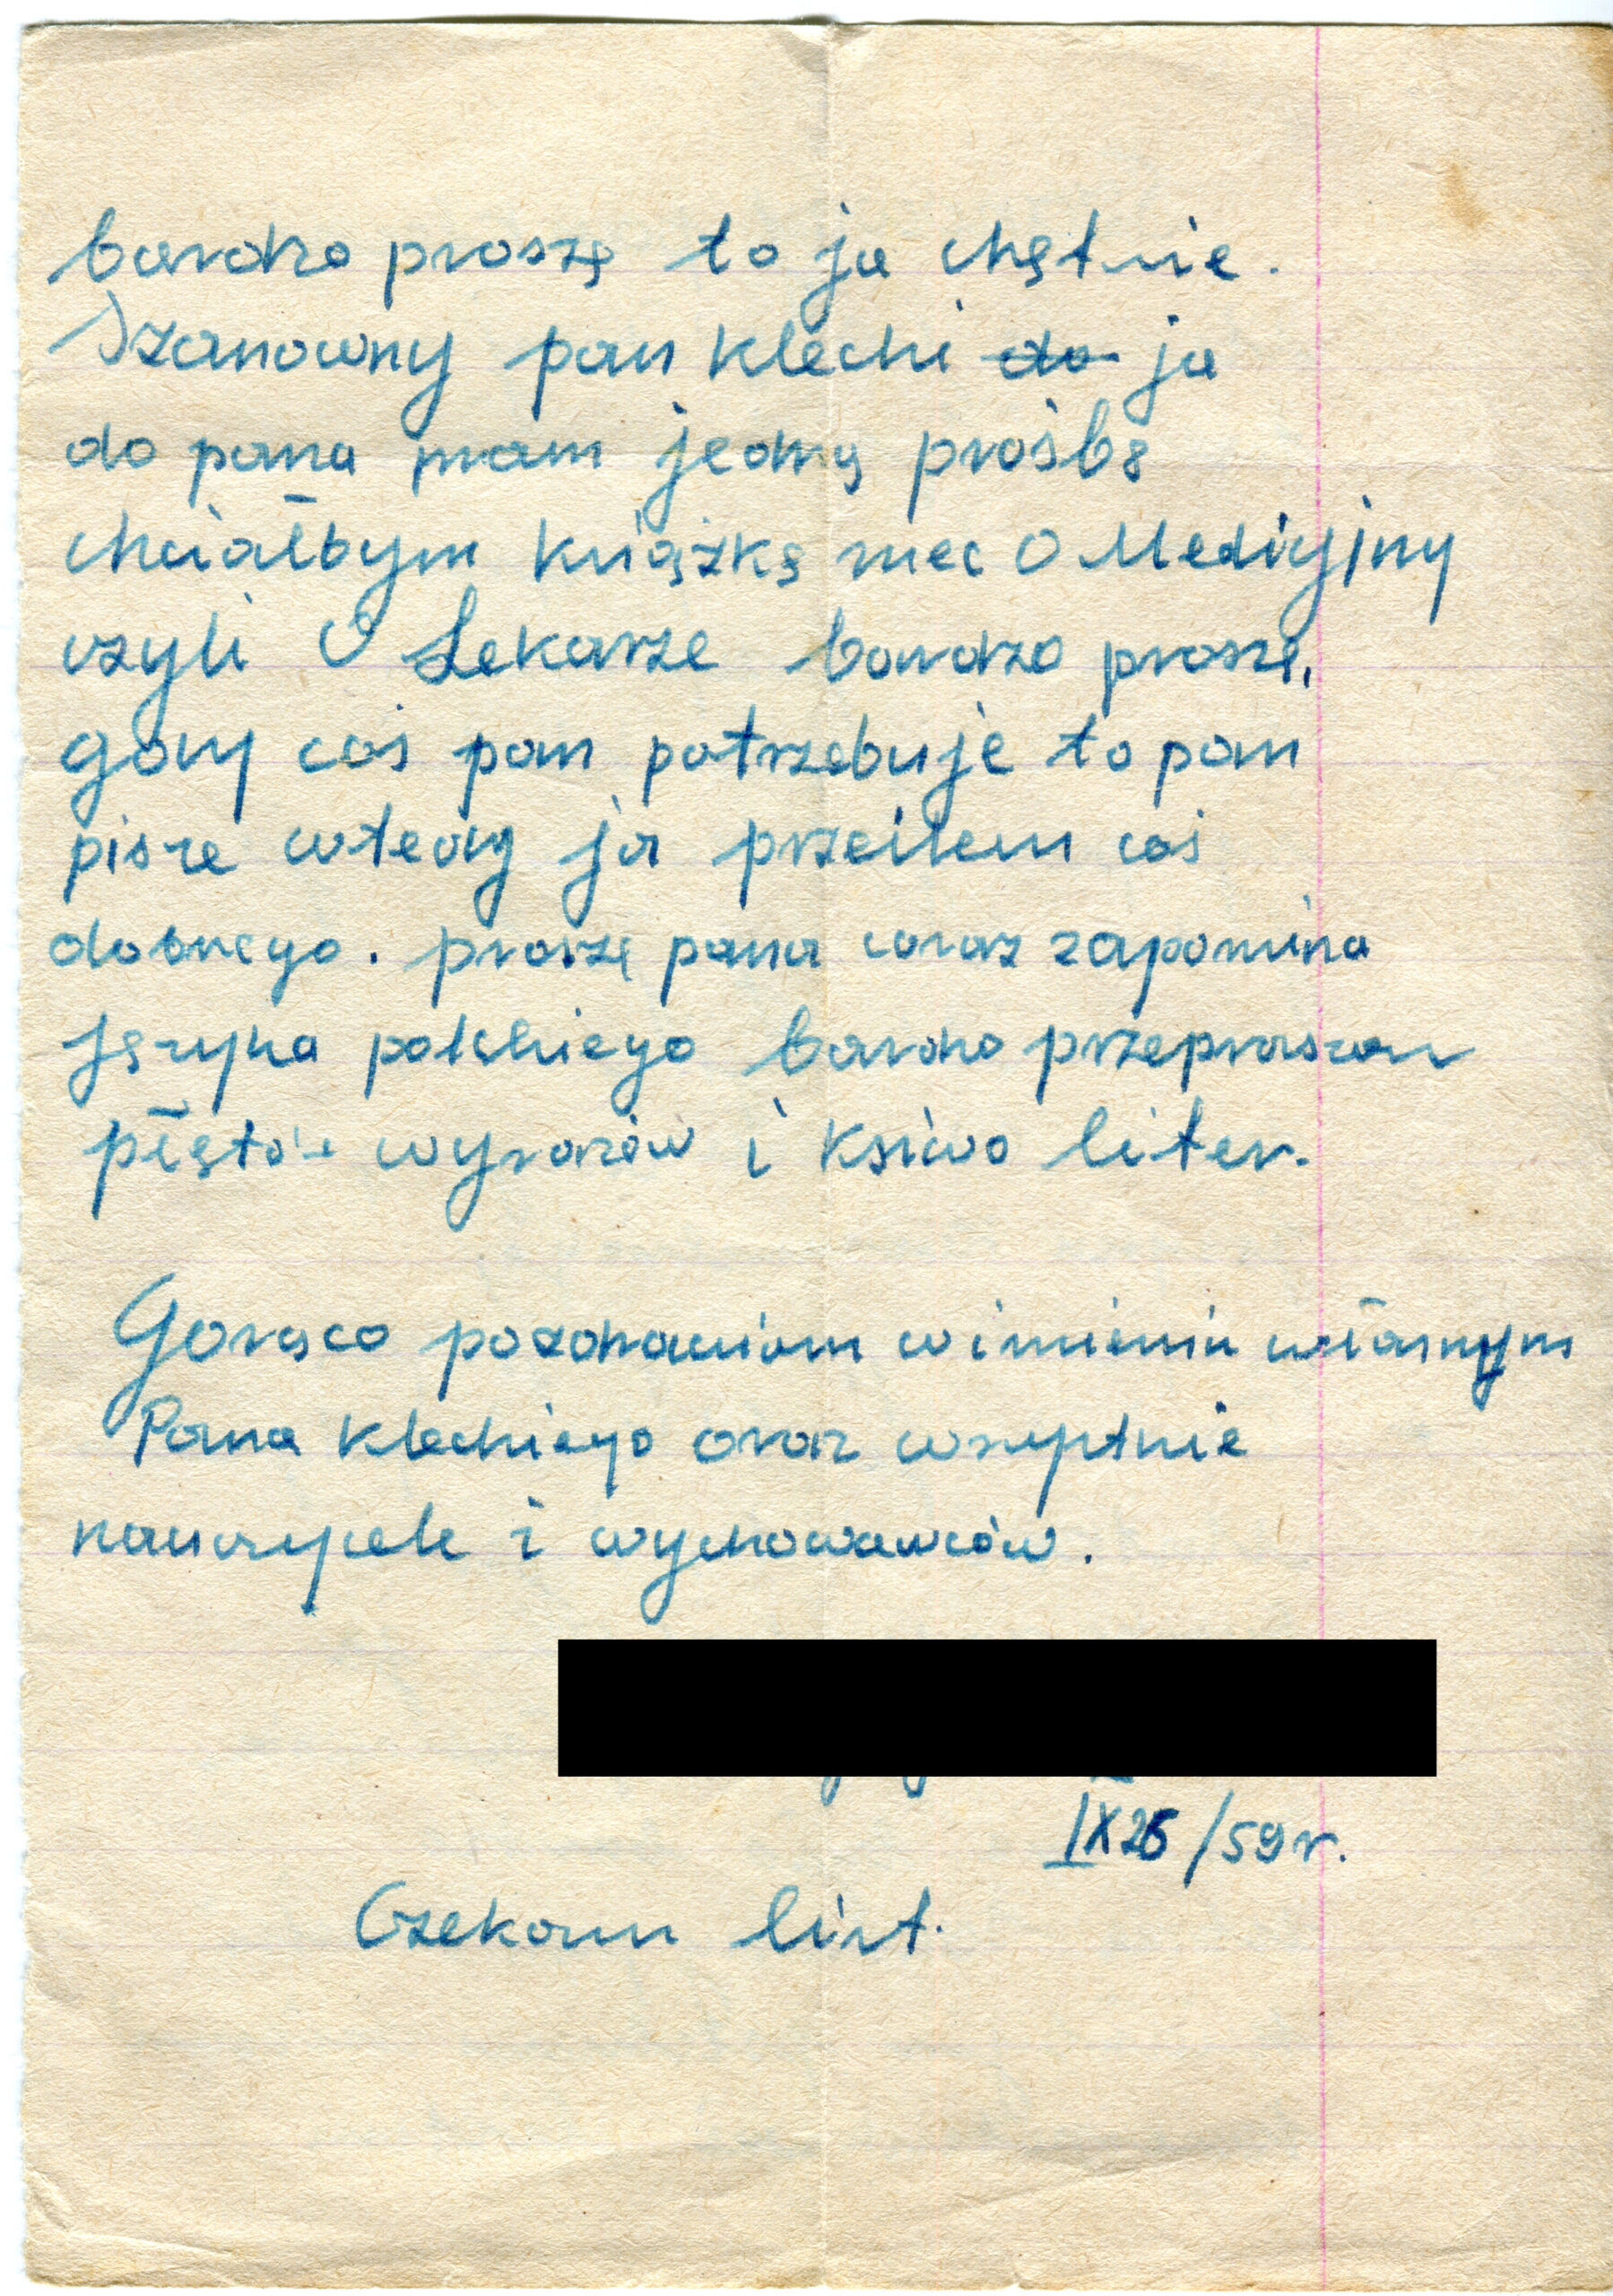 bardzo proszę to ja chętnie.
Szanowny pan Klecki do ja
do pana mam jedną prośbę
chciałbym książkę mec O Medicyjny
czyli O Lekarze bardzo proszę,
gdy coś pan potrzebuje to pan
pisze wtedy ja prześlem coś
dobrego. proszę pana coraz zapomina
języka polskiego bardzo przepraszam
wyrazów i ksiwo liter.
Gorąco pozdrawiam w imieniu własnym
Pana Kleckiego oraz wszyptnie
nauczyciele i wychowawców.
IX 25/59 r.
Czekam list.